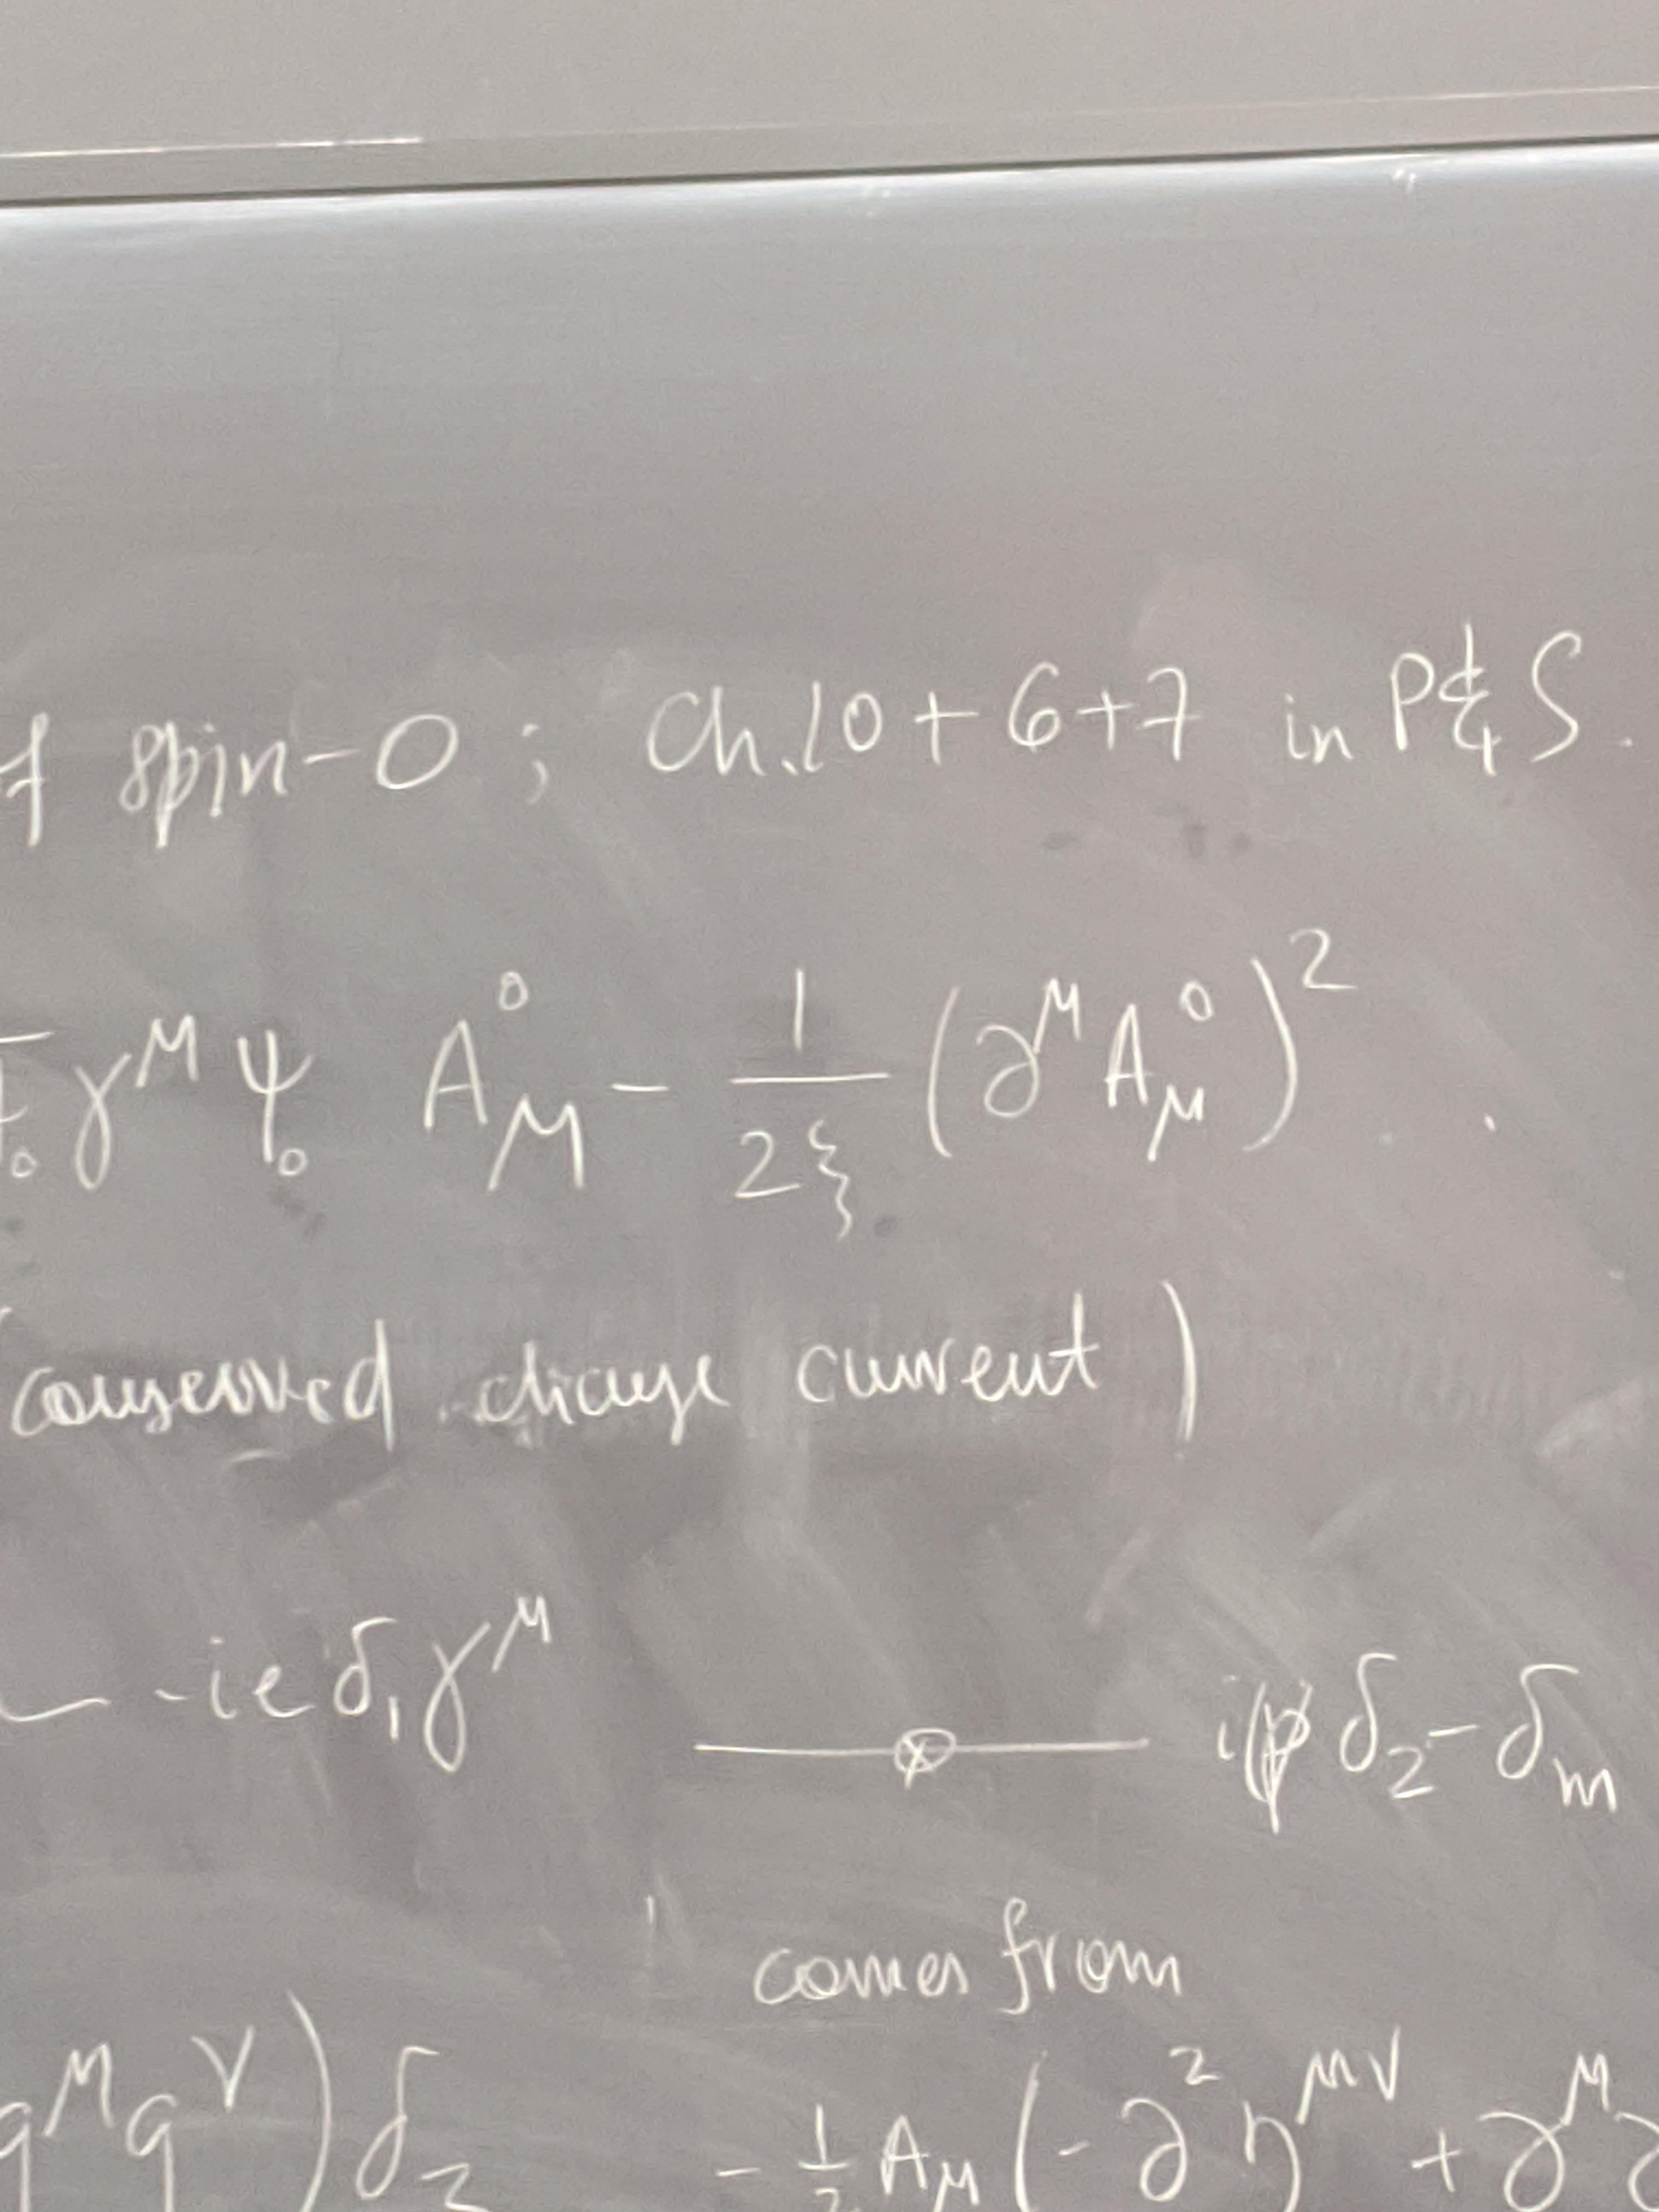 f spin-0 ; Ch.10+6+7 in P&S.
γ^μ ψ_0 A_μ^0 - 1/2ξ (∂^μ A_μ^0)^2 .
(conserved charge current)
-ieδ_1γ^μ i(p̸ δ_2 - δ_m
comes from
q^μ q^ν) δ_3 - 1/2 A_μ (-∂^2 η^{μν} + ∂^μ ∂